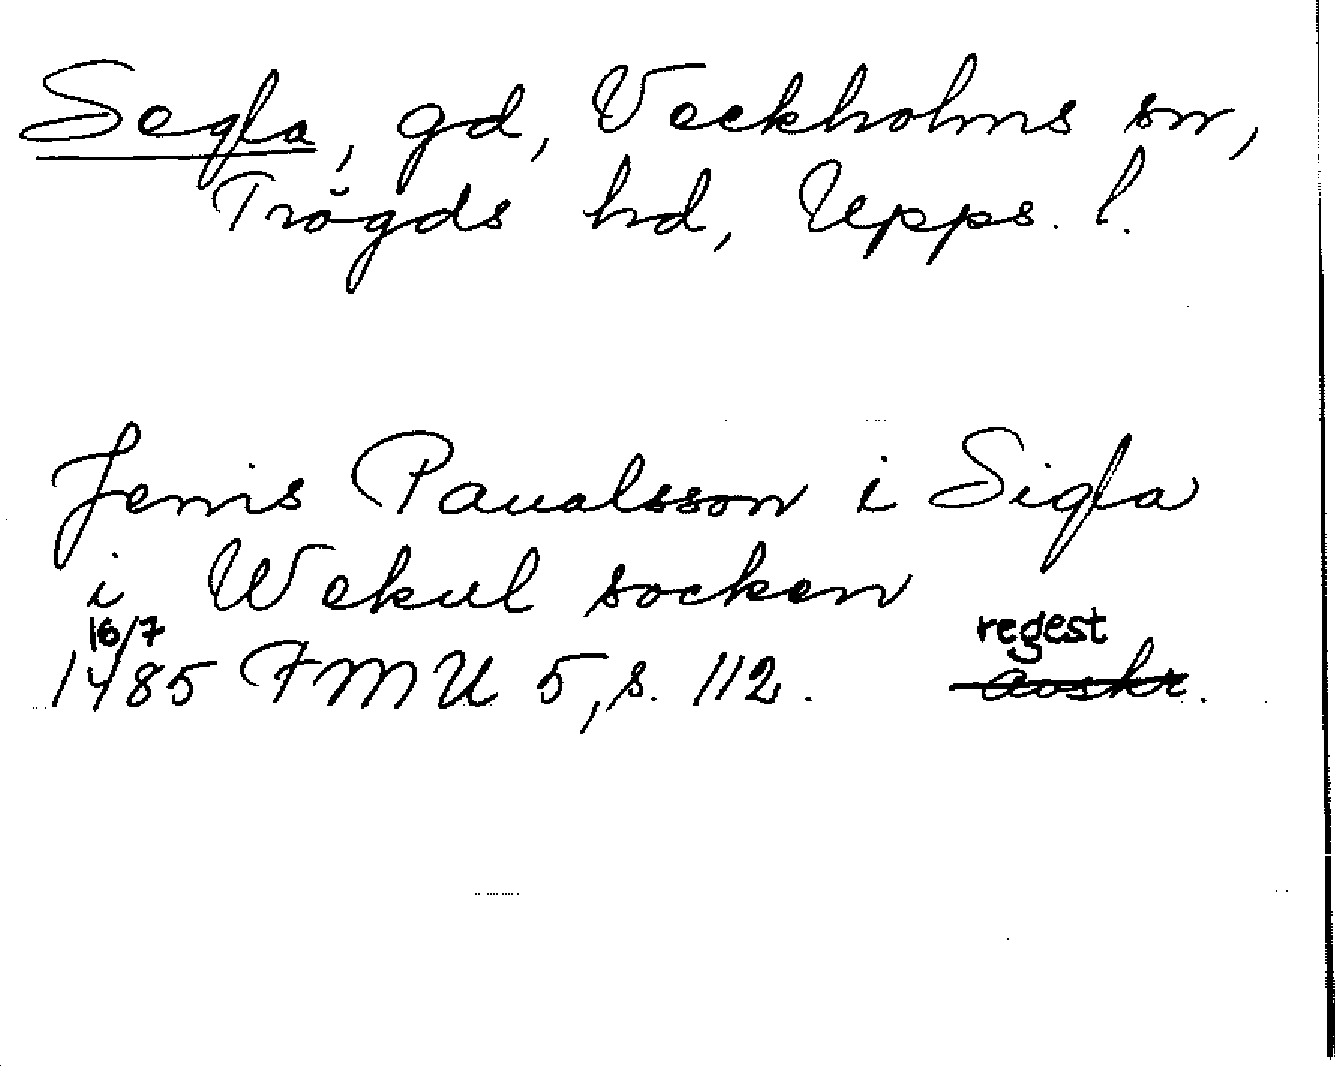 Segla, gd, Veckholms sn,
Trögds hd, Upps. l.
Jenis Paualsson i Sigla
i Wekul socken
16/7 regest
1485 FMU 5, s. 112. avskr.